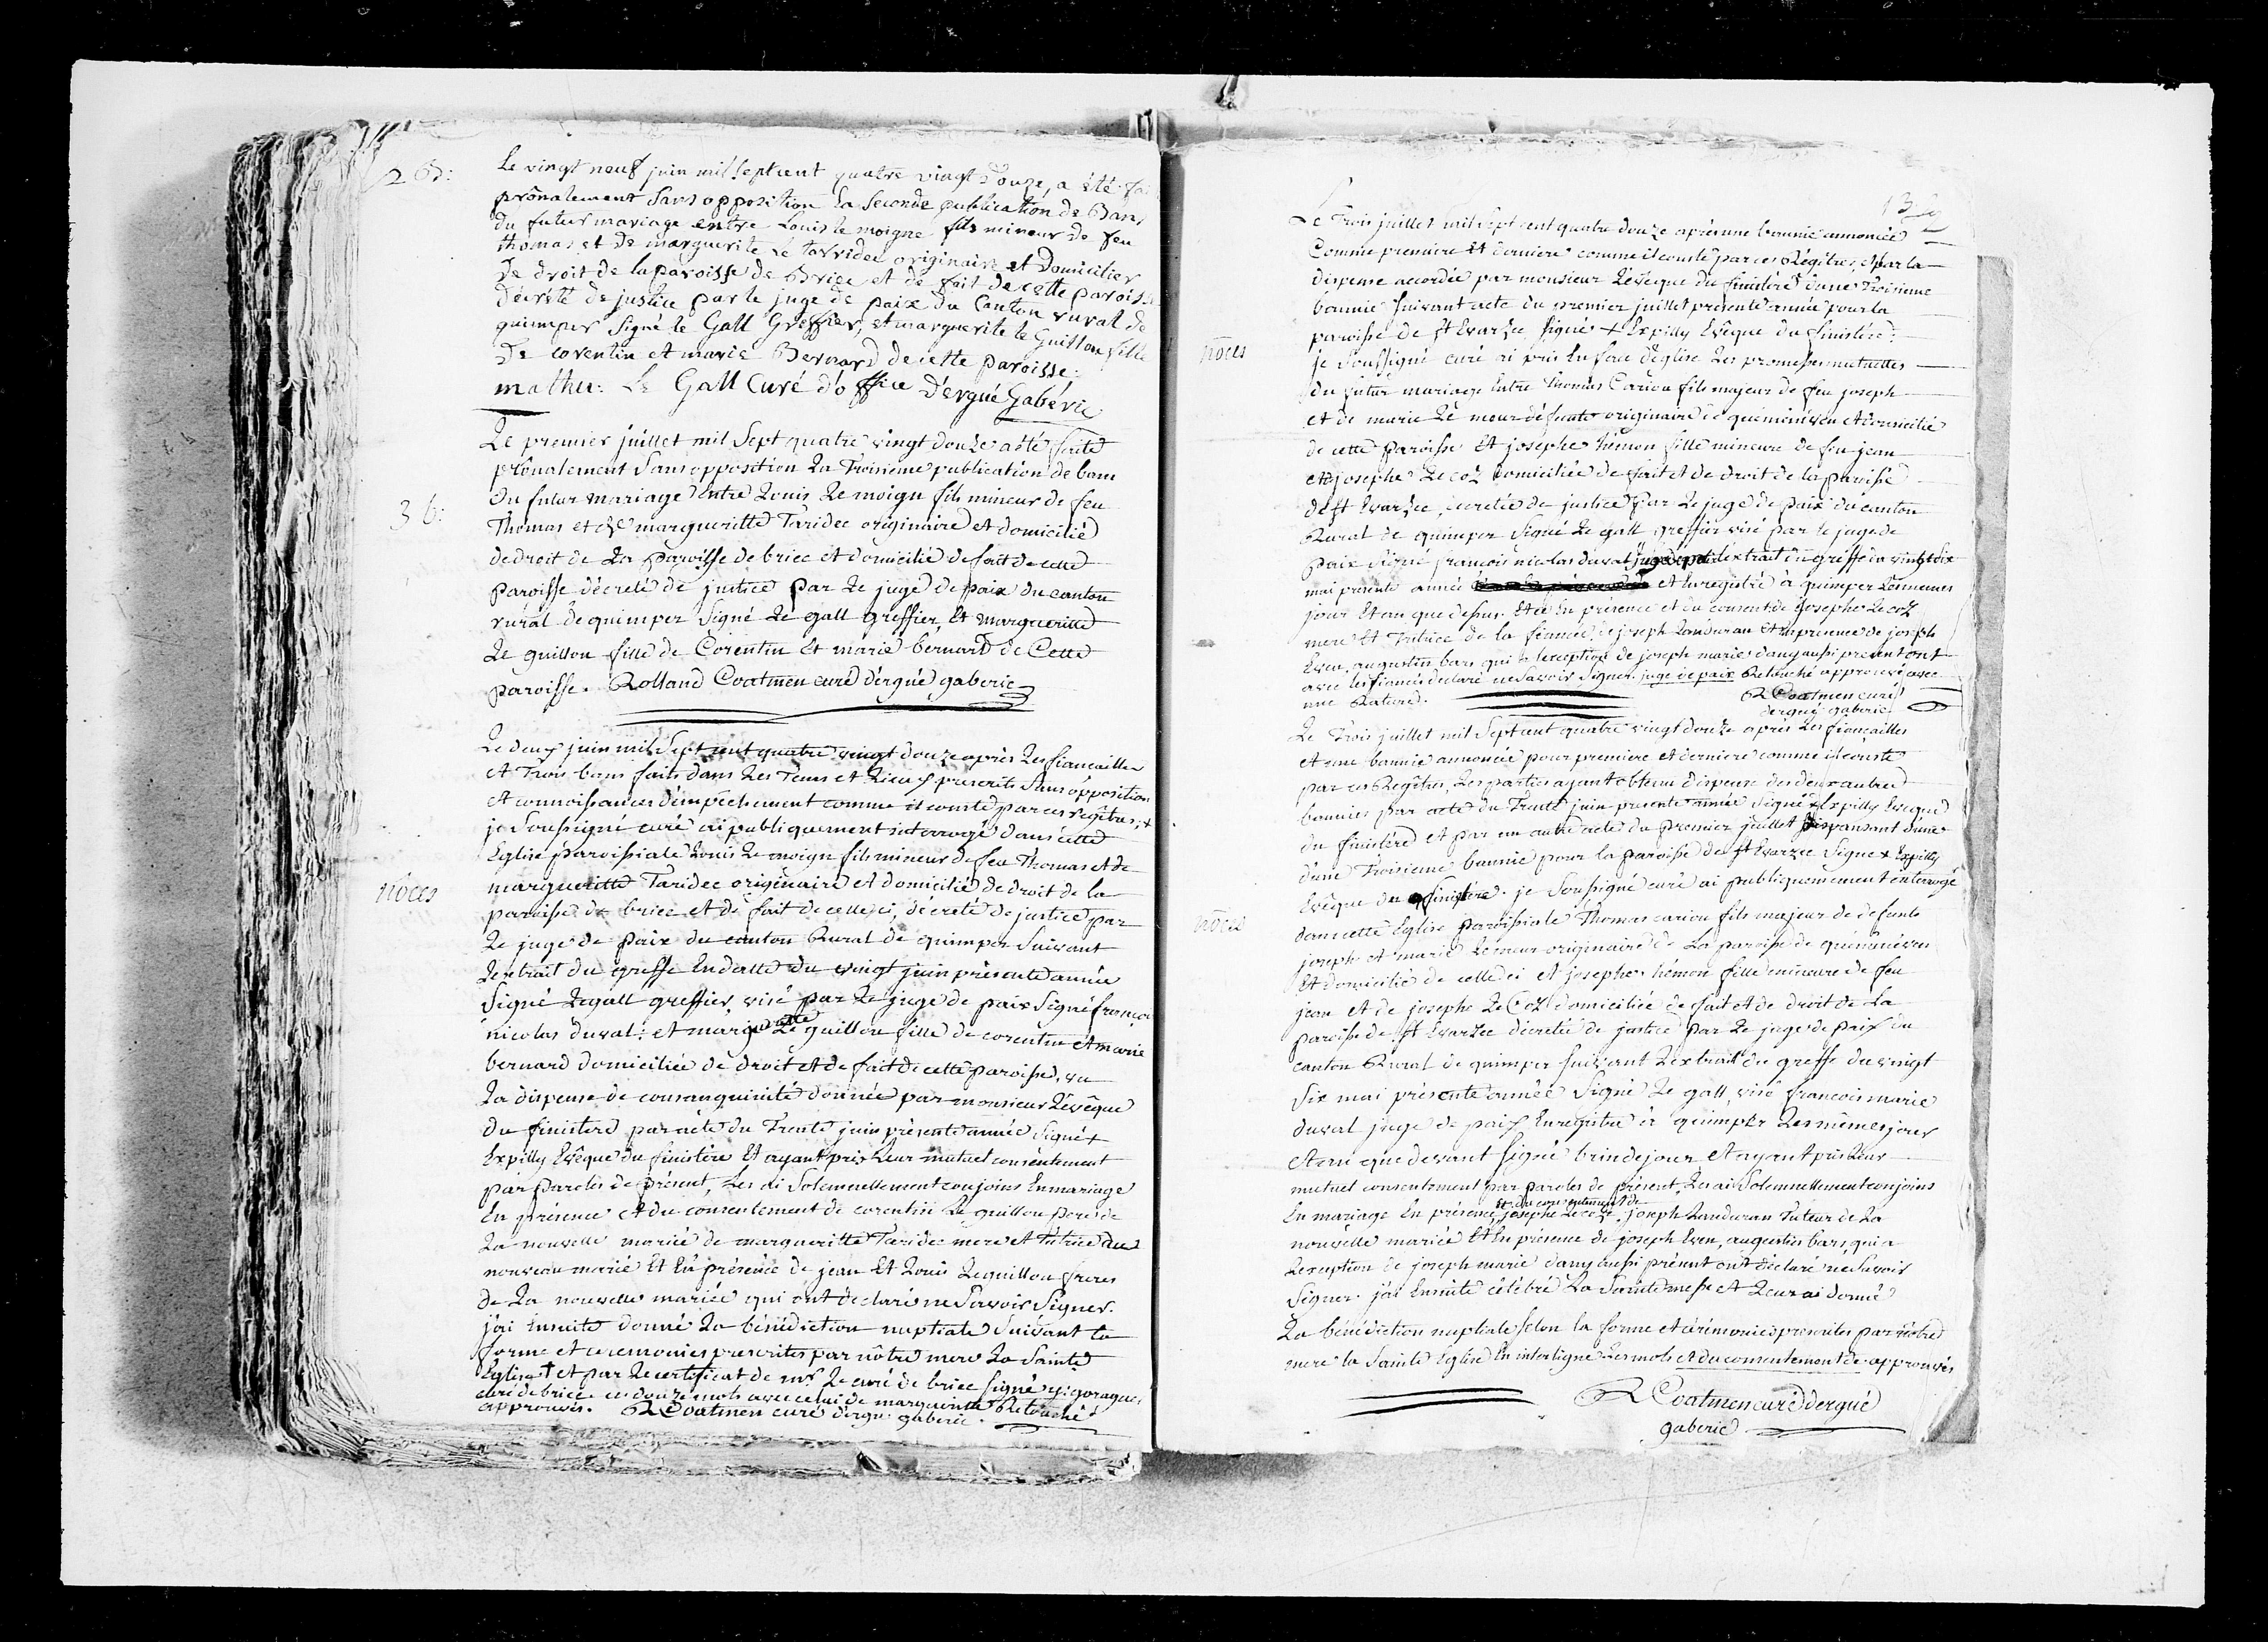 2 b:
Le vingt neuf juin mil Septcent quatre vingt Douze, a été fai
prônalement Sans opposition la Seconde publication de Bans
du futur mariage entre Louis le moigne fils mineur de feu
thomas et de marguerite Le tarridec originaire et Domicilier
De droit de la paroisse de Briec et de fait de cette paroisse
Décrété de justice par le juge de paix du Canton rural de
quimper Signé le Gall Greffier, et marguerite le Guillou fille
De corentin et marie Bernard de cette paroisse.
mathu: Le Gall Curé d'office D'ergué Gabéric
3 b:
Le premier juillet mil Sept quatre vingt douze a été faite
prônalement Sans opposition La Troisieme publication de bans
Du futur mariage Entre Louis Le moign fils mineur de feu
Thomas et de margueritte Taridec originaire et domicilié
de droit de La paroisse de briec et domicilié de fait de cette
paroisse décreté de justice par Le juge de paix du canton
rural de quimper Signé Le gall greffier, Et margueritte
Le guillou fille de Corentin Et marie bernard de Cette
paroisse. Rolland Coatmen curé d'ergué gaberic
nôces
Le deux juin mil Sept cent quatre vingt douze après Les fiancailles
et Trois bans faits dans Les Tems et Lieux prescrits Sans opposition
et connoissances d'empêchement comme il conste par ces regîtres, +
je Soussigné curé ai publiquement interrogé dans cette
Eglise paroissiale Louis Le moign fils mineur de feu Thomas et de
margueritte Taridec originaire et domicilié de droit de la
paroisse de briec et de fait de celle ci, décreté de justice par
Le juge de paix du canton Rural de quimper Suivant
Lextrait du greffe En datte du vingt juin présente année
Signé Le gall greffier, visé par Le juge de paix Signé françois
nicolas duval: et margueritte Le guillou fille de corentin et marie
bernard domiciliée de droit et de fait de cette paroisse, vu
La dispense de consanguinité donnée par monsieur L'évêque
du finistere par acte du Trente juin présente année Signé +
Expilly Evêque du finistère Et ayant pris Leur mutuel consentement
par paroles de présent, Les ai Solemnellement conjoins En mariage
En présence et du consentement de corentin Le guillou pere de
La nouvelle mariée de margueritte Taridec mere et Tutrice du
nouveau marié Et En présence de jean Et Louis Leguillou freres
de La nouvelle mariée qui ont declaré ne Savoir Signer.
j'ai Ensuite donné La bénédiction nuptiale Suivant la
forme et ceremonies prescrites par nôtre mere La Sainte
Eglise + et par Le certificat de mr Le curé de briec Signé y: goraguer
curé de briec. ces douze mots avec celui de margueritte Retouché
approuvés. R Coatmen curé d'ergué gaberic.
nôces
Le Trois juillet mil Sept cent quatre douze après une bannie annoncée
Comme premiere Et derniere comme il conste par ces Régîtres, et par la
dispense accordée par monsieur L'évêque du finistère d'une Troisieme
bannie Suivant acte du premier juillet présente année pour la
paroisse de St Evarzec Signé + Expilly Evêque du finistère:
je Soussigné curé ai pris En face d'eglise Les promesses mutuelles
du futur mariage Entre Thomas Cariou fils majeur de feu joseph
et de marie Le meur défunte originaire de quéménéven et domicilié
de cette paroisse Et josephe hémon fille mineure de feu jean
et josephe Le coz domiciliée de fait et de droit de la paroisse
de St Evarzec, decretée de justice par Le juge de paix du canton
Rural de quimper Signé Le gall greffier visé par le juge de
paix Signé françois nicolas duval juge de paix l'extrait du greffe du vingt Six
mai presente année et Enregistré à quimper Les memes
jour Et an que dessus. Et ce En présence et du consent. de josephe Le coz
mere Et Tutrice de la fiancée, de joseph Landuran Et en presence de joseph
Even, augustin bars qui à L'exception de joseph marie dany aussi present ont
avec les fiancés declaré ne Savoir Signer. juge de paix Retouché approuvé avec
une Rature.
R Coatmen curé
d'ergué gaberic
nôces
Le Trois juillet mil Sept cent quatre vingt douze après Les fiançailles
et une bannie annoncée pour premiere et derniere comme il conste
par ces Regîtres, Les parties ayant obtenu dispense des deux autres
bannies par acte du Trente juin presente année Signé + Expilly Evêque
du finistère et par un autre acte du premier juillet dispansant d'une
d'une Troisieme bannie pour la paroisse de St Evarzec Signé + Expilly
Evêque du finistère. je Soussigné curé ai publiquement interrogé
dans cette Eglise paroissiale Thomas cariou fils majeur de defunts
joseph et marie Le meur originaire de La paroisse de quéménéven
Et domicilié de celle ci et josephe hémon fille mineure de feu
jean et de josephe Le Coz domiciliée de fait et de droit de La
paroisse de St Evarzec décretée de justice par Le juge de paix du
canton Rural de quimper Suivant L'extrait du greffe du vingt
Six mai présente année Signé Le gall, visé francois marie
duval juge de paix Enregistré à quimper Les mêmes jour
et an que devant Signé brindejonc et ayant pris Leur
mutuel consentement par paroles de présent, Les ai Solemnellement conjoins
En mariage En présence et du consentement de josephe Le coz, joseph Landuran Tuteur de La
nouvelle mariée Et En présence de joseph Even, augustin bars, qui a
L'exception de joseph marie dany aussi présent ont déclaré ne Savoir
Signer. j'ai Ensuite célébré La Sainte messe et Leur ai donné
La bénédiction nuptiale selon la forme et cérémonies prescrites par nôtre
mere la Sainte Eglise En interligne Les mots et du consentement de approuvés
R Coatmen curé d'ergué
gaberic